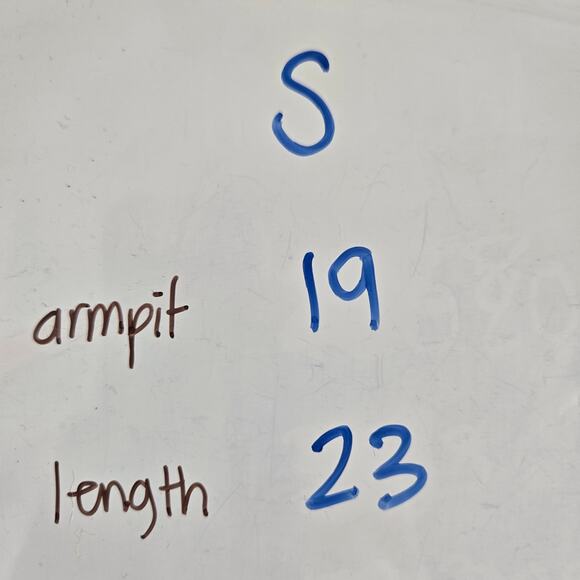 S
armpit 19
length 23